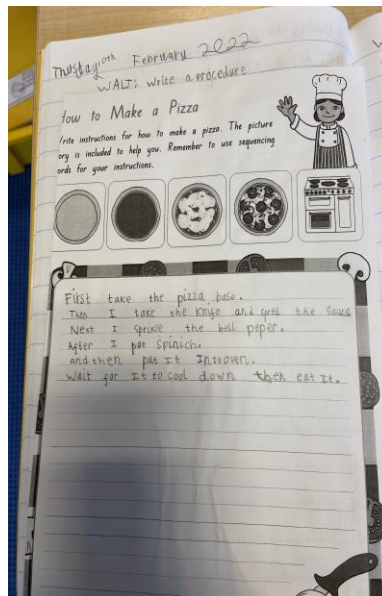 Thusday 10th February 2022
WALT: write a procedure
How to Make a Pizza
Write instructions for how to make a pizza. The picture
ory is included to help you. Remember to use sequencing
ords for your instructions.
First take the pizza base.
Then I take the Knife and the sauce
Next I sprikle the bell peper.
After I put spinich.
And then put It Into oven.
Wait for It to cool down then eat It.